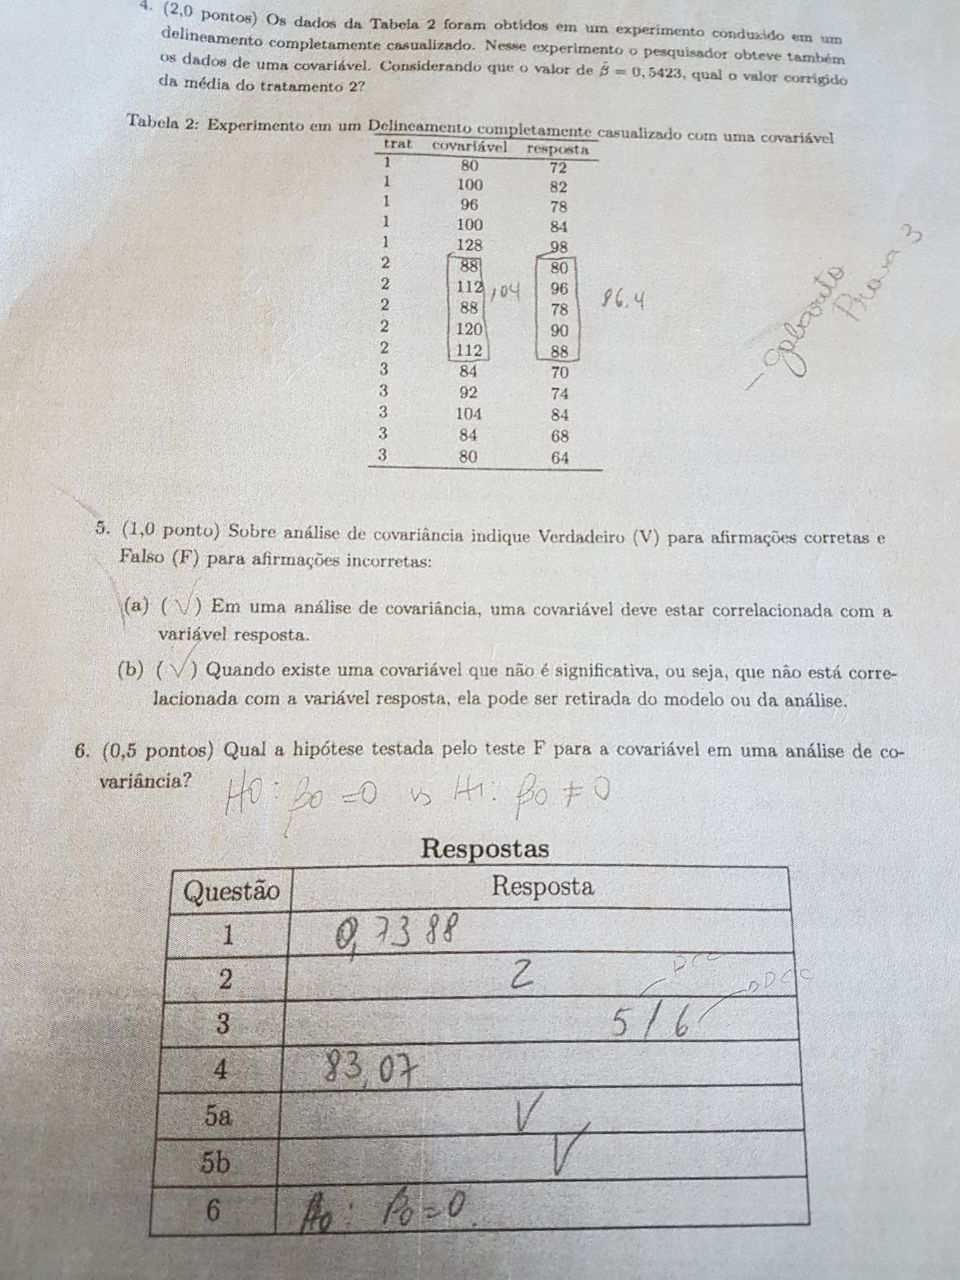 4. (2,0 pontos) Os dados da Tabela 2 foram obtidos em um experimento conduzido em um
delineamento completamente casualizado. Nesse experimento o pesquisador obteve também
os dados de uma covariável. Considerando que o valor de β̂ = 0,5423, qual o valor corrigido
da média do tratamento 2?
Tabela 2: Experimento em um Delineamento completamente casualizado com uma covariável
trat covariável resposta
1 80 72
1 100 82
1 96 78
1 100 84
1 128 98
2 88 80
2 112 96
2 88 78
2 120 90
2 112 88
3 84 70
3 92 74
3 104 84
3 84 68
3 80 64
104
86.4
- gabarito
Prova 3
5. (1,0 ponto) Sobre análise de covariância indique Verdadeiro (V) para afirmações corretas e
Falso (F) para afirmações incorretas:
(a) (V) Em uma análise de covariância, uma covariável deve estar correlacionada com a
variável resposta.
(b) (V) Quando existe uma covariável que não é significativa, ou seja, que não está corre-
lacionada com a variável resposta, ela pode ser retirada do modelo ou da análise.
6. (0,5 pontos) Qual a hipótese testada pelo teste F para a covariável em uma análise de co-
variância?
H0: β0 = 0 vs H1: β0 ≠ 0
Respostas
Questão Resposta
1 0,7388
2 2
3 5 / 6
4 83,07
5a V
5b V
6 H0: β0 = 0.